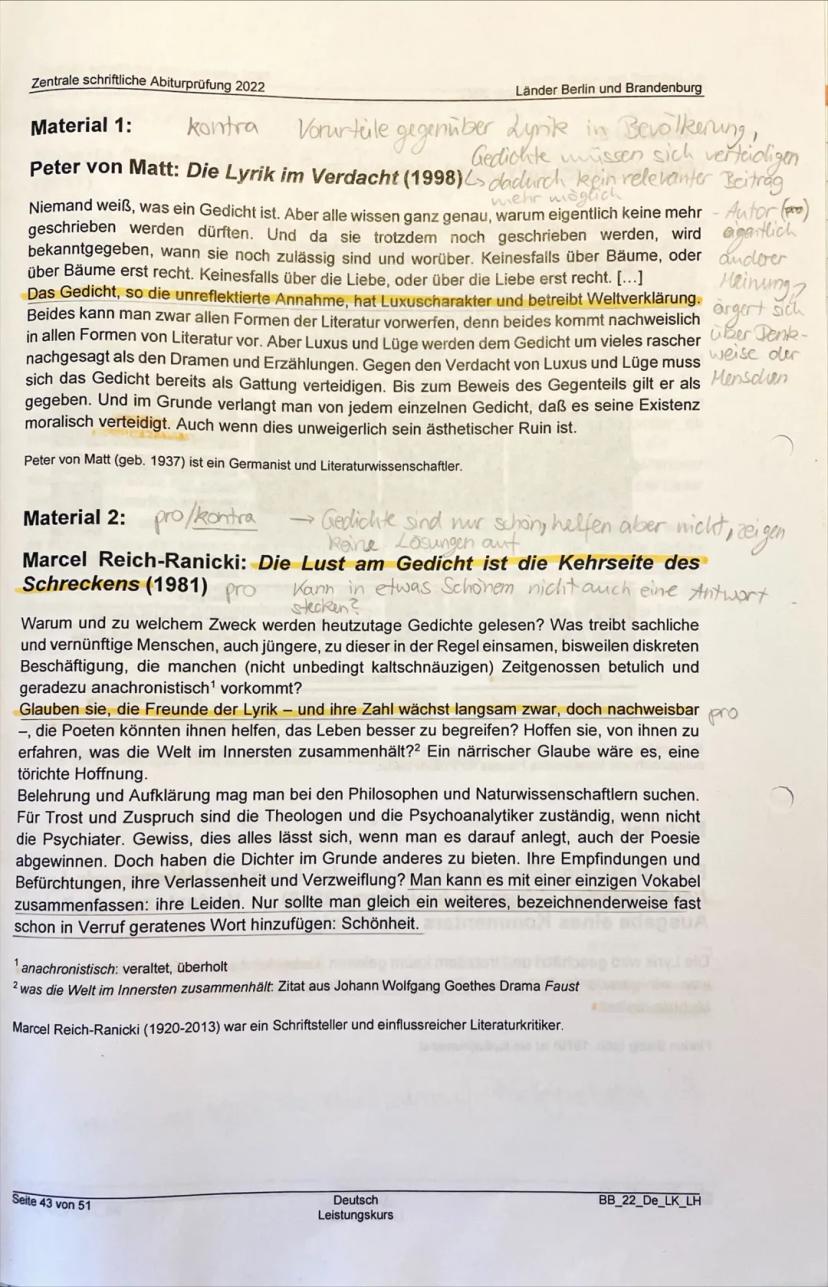 Zentrale schriftliche Abiturprüfung 2022 Länder Berlin und Brandenburg
Material 1: kontra Vorurteile gegenüber Lyrik in Bevölkerung,
Gedichte müssen sich verteidigen
Peter von Matt: Die Lyrik im Verdacht (1998) ↳ dadurch kein relevanter Beitrag
mehr möglich
Niemand weiß, was ein Gedicht ist. Aber alle wissen ganz genau, warum eigentlich keine mehr
geschrieben werden dürften. Und da sie trotzdem noch geschrieben werden, wird
bekanntgegeben, wann sie noch zulässig sind und worüber. Keinesfalls über Bäume, oder
über Bäume erst recht. Keinesfalls über die Liebe, oder über die Liebe erst recht. [...]
Das Gedicht, so die unreflektierte Annahme, hat Luxuscharakter und betreibt Weltverklärung.
Beides kann man zwar allen Formen der Literatur vorwerfen, denn beides kommt nachweislich
in allen Formen von Literatur vor. Aber Luxus und Lüge werden dem Gedicht um vieles rascher
nachgesagt als den Dramen und Erzählungen. Gegen den Verdacht von Luxus und Lüge muss
sich das Gedicht bereits als Gattung verteidigen. Bis zum Beweis des Gegenteils gilt er als
gegeben. Und im Grunde verlangt man von jedem einzelnen Gedicht, daß es seine Existenz
moralisch verteidigt. Auch wenn dies unweigerlich sein ästhetischer Ruin ist.
- Autor (pro)
eigentlich
anderer
Meinung,
ärgert sich
über Denk-
weise der
Menschen
Peter von Matt (geb. 1937) ist ein Germanist und Literaturwissenschaftler.
Material 2: pro/kontra → Gedichte sind nur schön, helfen aber nicht, zeigen
keine Lösungen auf
Marcel Reich-Ranicki: Die Lust am Gedicht ist die Kehrseite des
Schreckens (1981) pro Kann in etwas Schönem nicht auch eine Antwort
stecken?
Warum und zu welchem Zweck werden heutzutage Gedichte gelesen? Was treibt sachliche
und vernünftige Menschen, auch jüngere, zu dieser in der Regel einsamen, bisweilen diskreten
Beschäftigung, die manchen (nicht unbedingt kaltschnäuzigen) Zeitgenossen betulich und
geradezu anachronistisch¹ vorkommt?
Glauben sie, die Freunde der Lyrik – und ihre Zahl wächst langsam zwar, doch nachweisbar pro
–, die Poeten könnten ihnen helfen, das Leben besser zu begreifen? Hoffen sie, von ihnen zu
erfahren, was die Welt im Innersten zusammenhält?² Ein närrischer Glaube wäre es, eine
törichte Hoffnung.
Belehrung und Aufklärung mag man bei den Philosophen und Naturwissenschaftlern suchen.
Für Trost und Zuspruch sind die Theologen und die Psychoanalytiker zuständig, wenn nicht
die Psychiater. Gewiss, dies alles lässt sich, wenn man es darauf anlegt, auch der Poesie
abgewinnen. Doch haben die Dichter im Grunde anderes zu bieten. Ihre Empfindungen und
Befürchtungen, ihre Verlassenheit und Verzweiflung? Man kann es mit einer einzigen Vokabel
zusammenfassen: ihre Leiden. Nur sollte man gleich ein weiteres, bezeichnenderweise fast
schon in Verruf geratenes Wort hinzufügen: Schönheit.
¹ anachronistisch: veraltet, überholt
² was die Welt im Innersten zusammenhält: Zitat aus Johann Wolfgang Goethes Drama Faust
Marcel Reich-Ranicki (1920-2013) war ein Schriftsteller und einflussreicher Literaturkritiker.
Seite 43 von 51 Deutsch BB_22_De_LK_LH
Leistungskurs